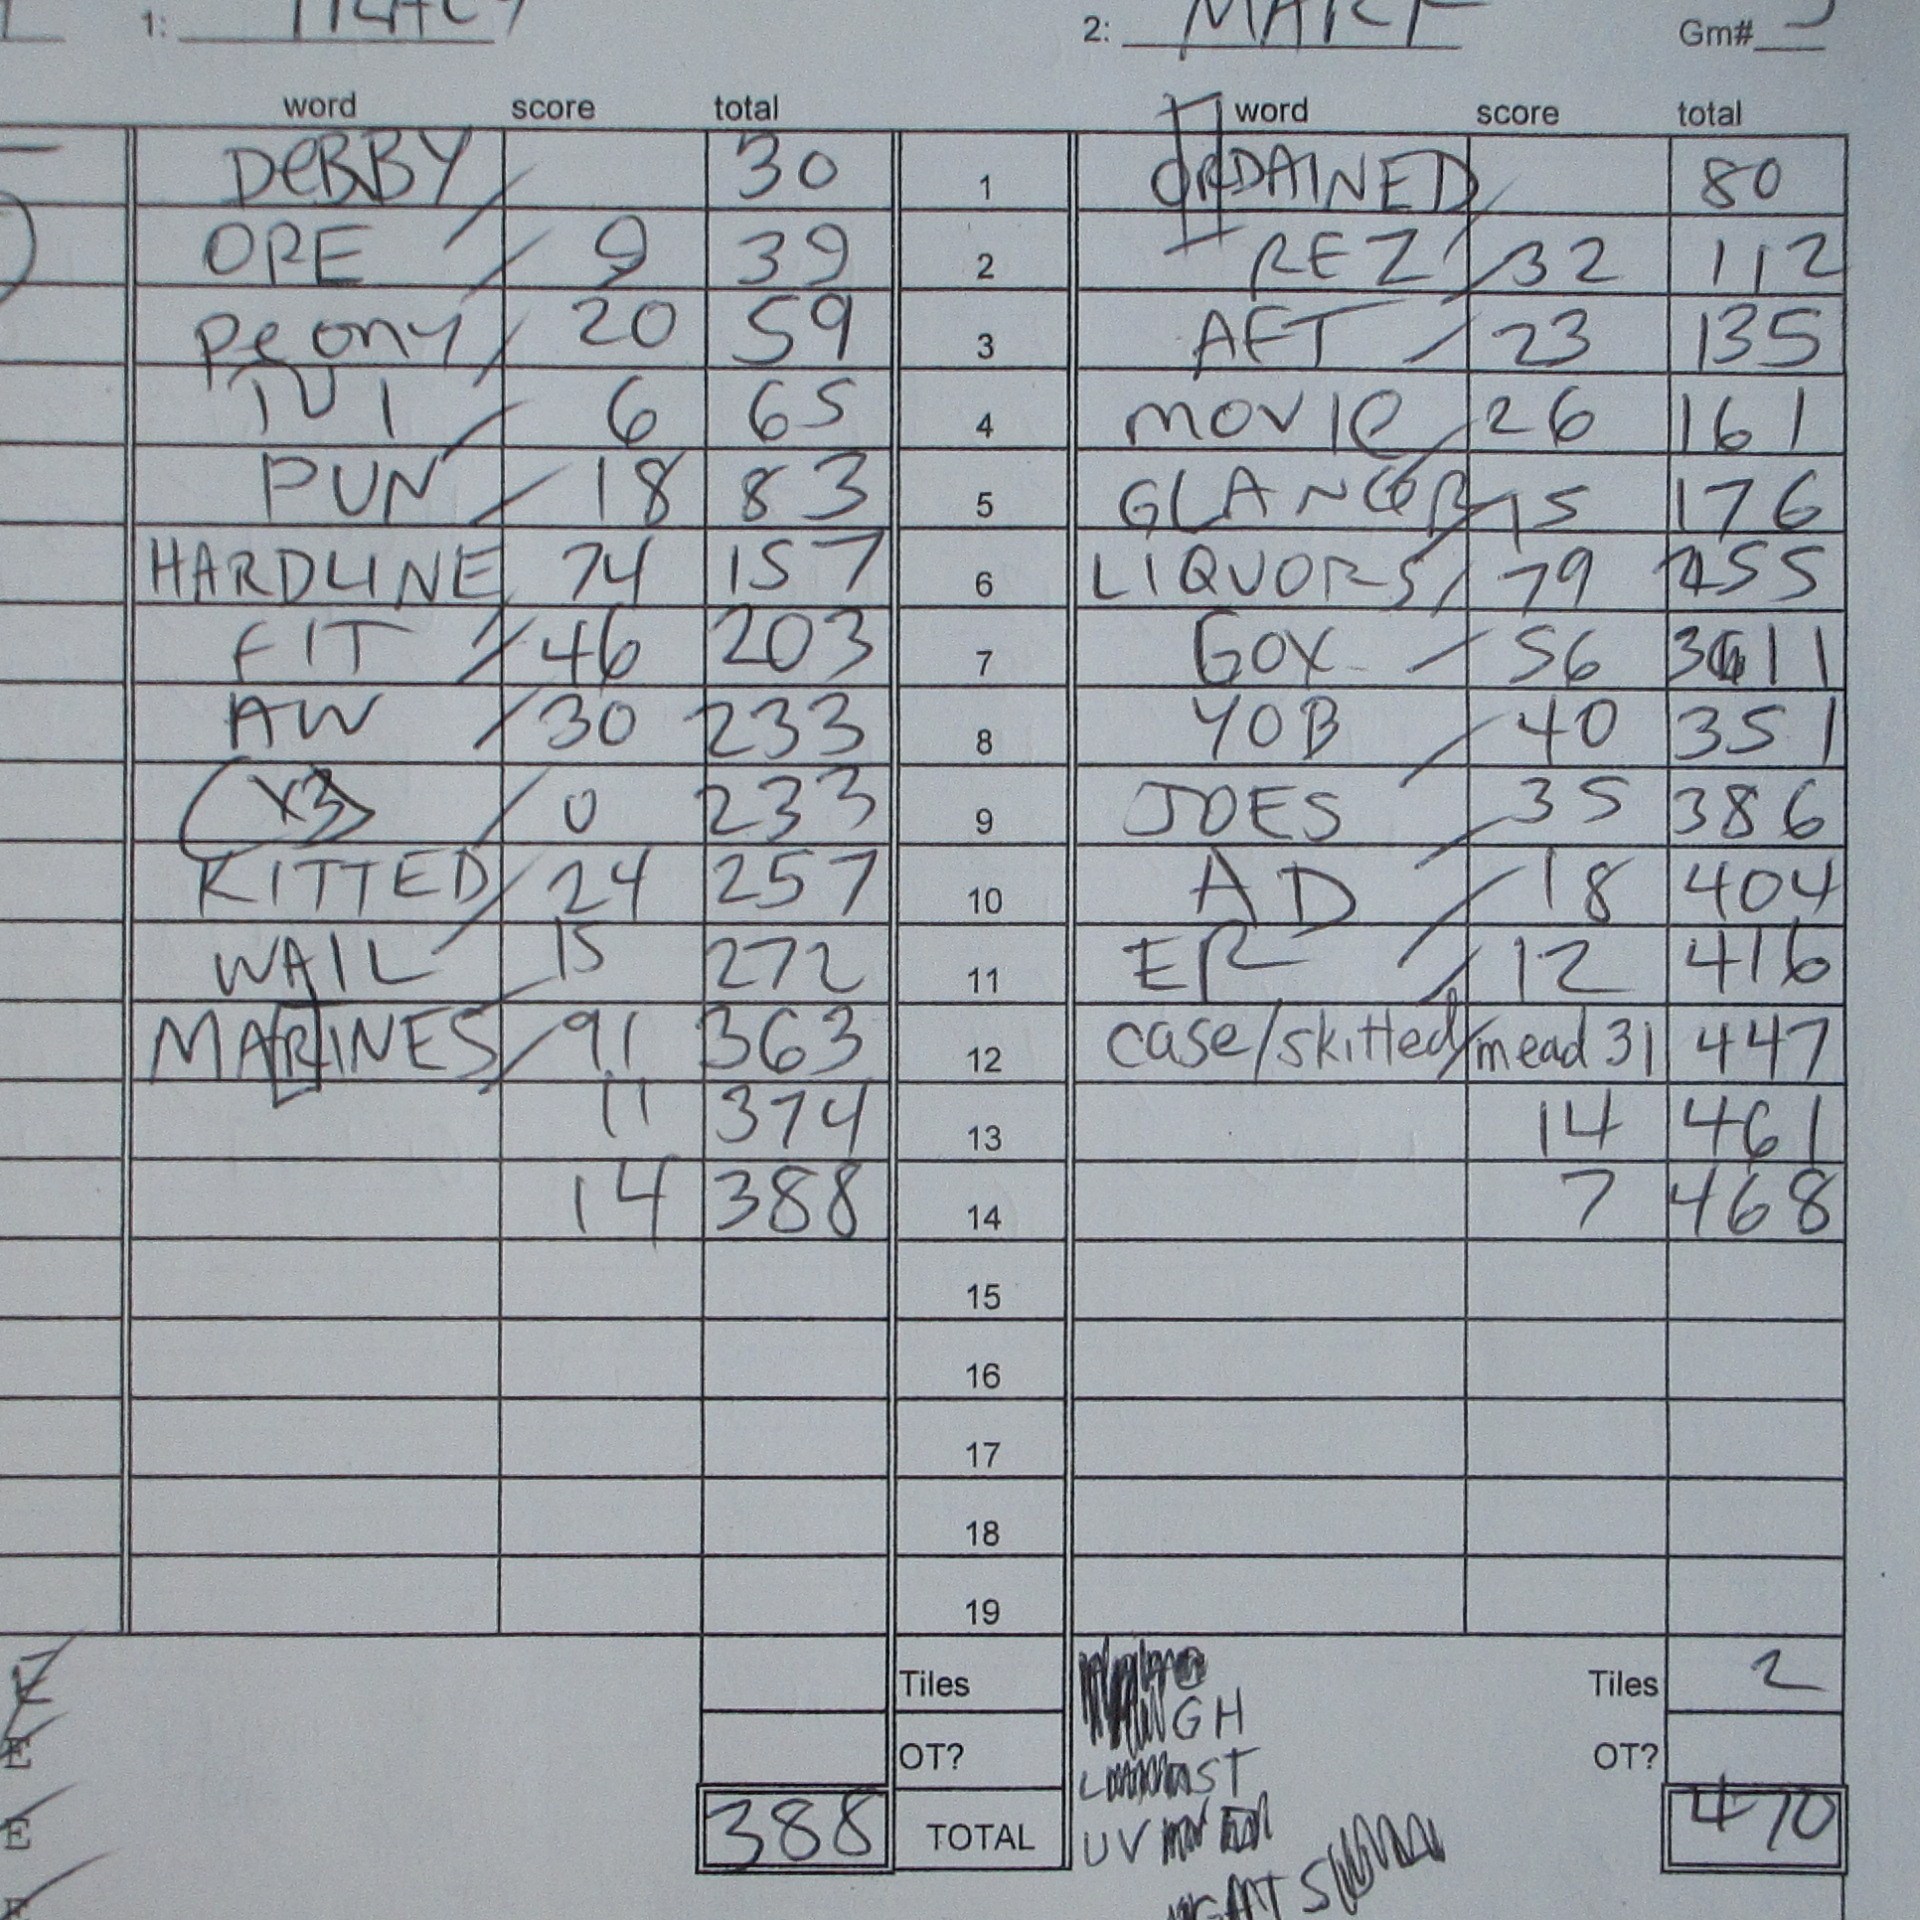 1: 2: MARK Gm#
word score total word score total
DeBBY 30 1 ORDAINED 80
OPE 9 39 2 REZ 32 112
Peony 20 59 3 AFT 23 135
6 65 4 MOVIE 26 161
PUN 18 83 5 GLANCER 15 176
HARDLINE 74 157 6 LIQUORS 79 255
FIT 46 203 7 GOX 56 311
AW 30 233 8 YOB 40 351
(X3) 0 233 9 JOES 35 386
KITTED 24 257 10 AD 18 404
WAIL 15 272 11 ER 12 416
MARINES 91 363 12 case/skitted/mead 31 447
11 374 13 14 461
14 388 14 7 468
15
16
17
18
19
Tiles Tiles 2
GH
E OT? ST OT?
E 388 TOTAL UV 470